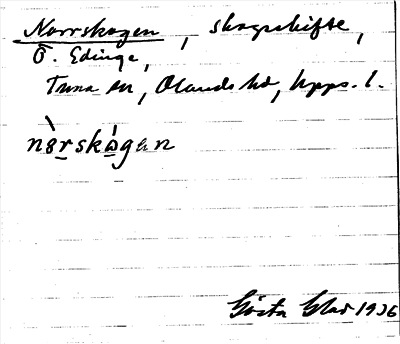 Norrskogen, skogsskifte,
Ö. Edinge,
Tuna sn, Olands hd, Upps. l.
nòrskó̱gen
Gösta Glad 1936